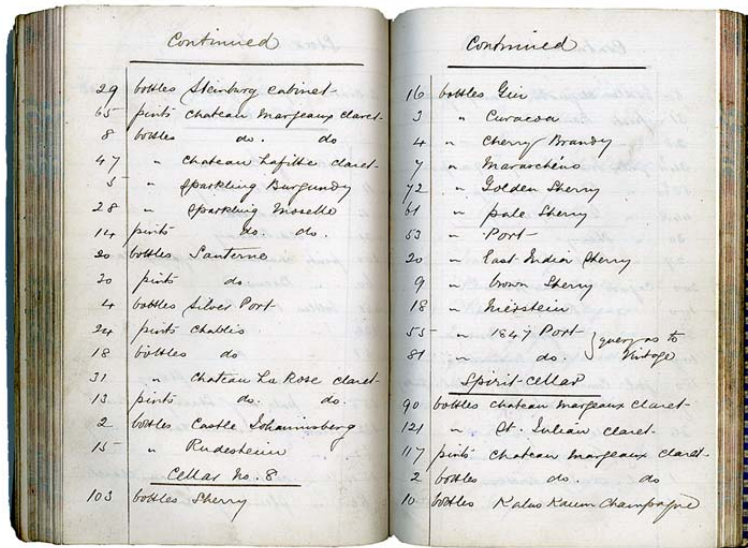 Continued
29 bottles Steinburg cabinet
65 pints chateau Margeaux claret
8 bottles do. do
47 " chateau Lafitte claret
5 " Sparkling Burgundy
28 " Sparkling Moselle
14 pints do. do.
20 bottles Sauterne
30 pints do.
4 bottles Silver Port
24 pints Chablis
18 bottles do
31 " chateau La Rose claret
13 pints do. do.
2 bottles Castle Johannisberg
15 " Rudesheim
Cellar No. 8
103 bottles Sherry
Continued
16 bottles Gin
3 " Curacoa
4 " Cherry Brandy
7 " Maraschino
72 " Golden Sherry
61 " pale Sherry
53 " Port
20 " East India Sherry
9 " brown Sherry
18 " Nierstein
55 " 1847 Port } query as to
81 " do. } Vintage
Spirit-cellar
90 bottles chateau Margeaux claret
121 " St. Julian claret
117 pints chateau Margeaux claret
2 bottles do. do
10 bottles Champagne